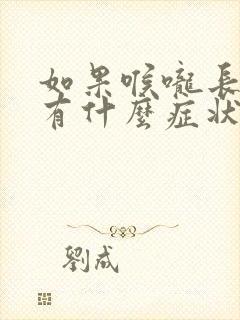 如果喉嚨長
有什麼症狀
劉成